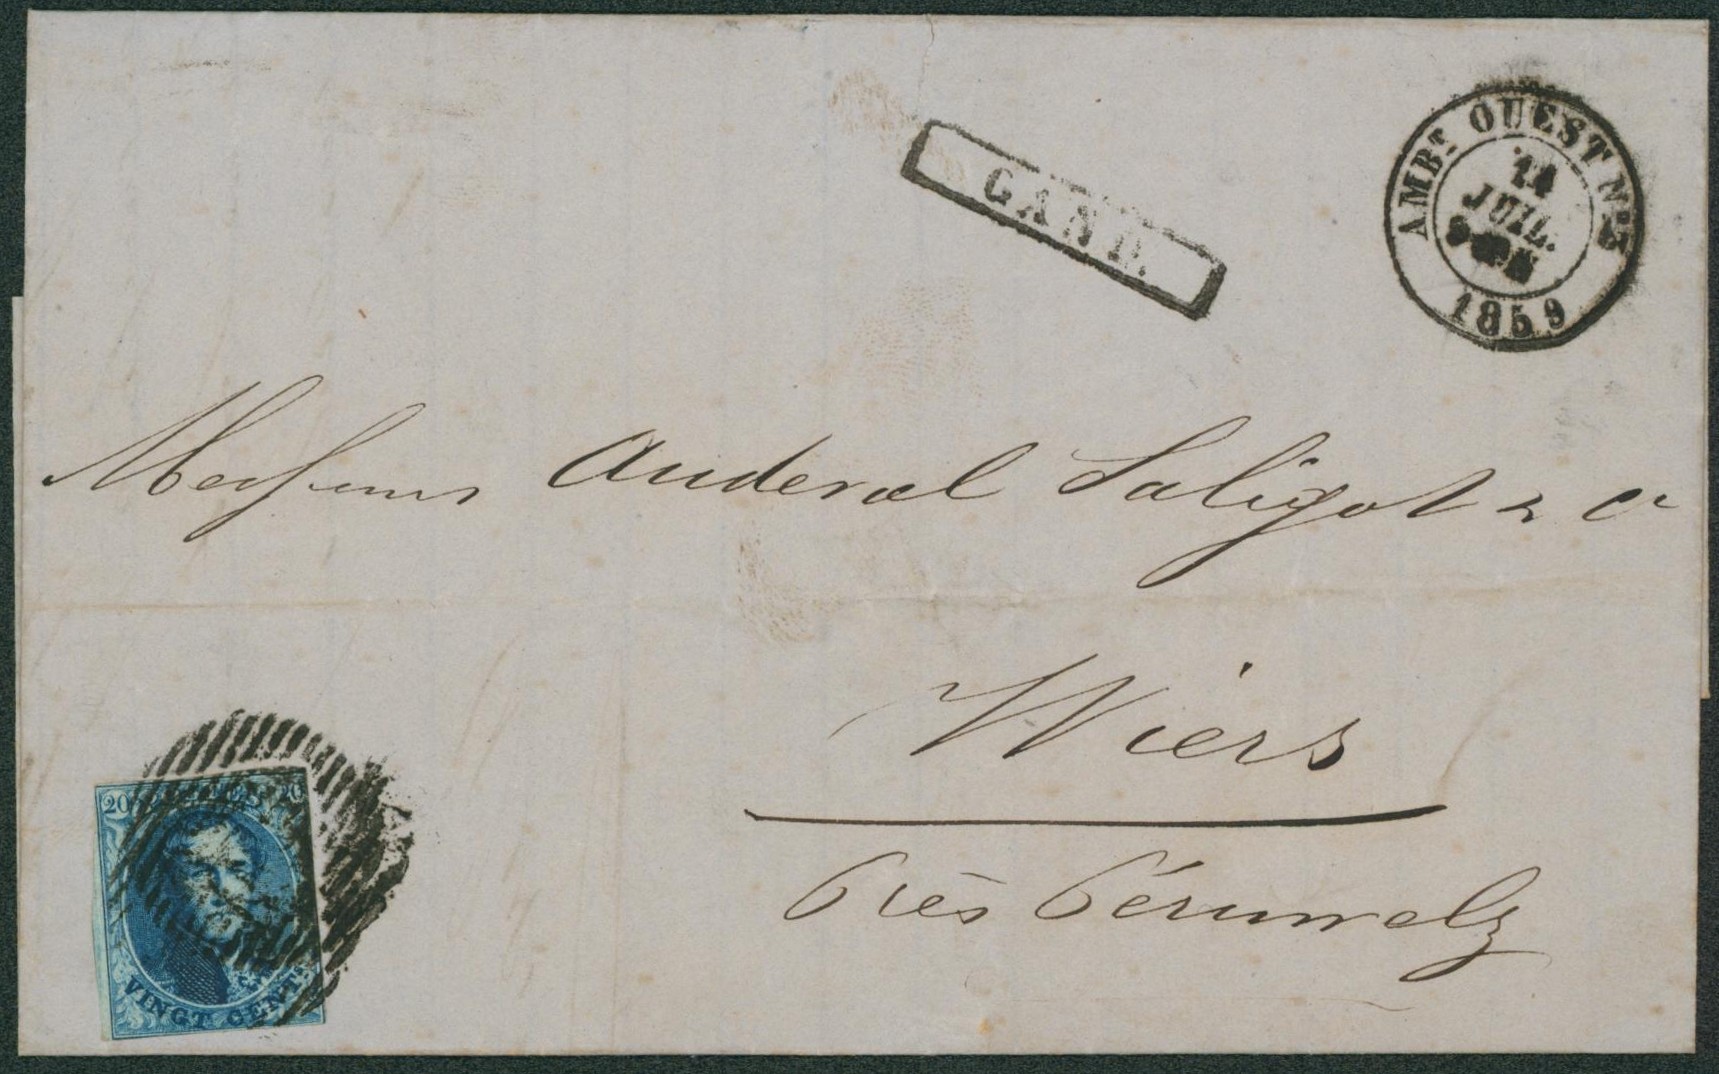 GAND.
AMBT. OUEST No
14
JUIL.
1859
Messieurs Auderval Saligot & Cie
Wiers
Près Péruwelz
20 20
VINGT CENTS